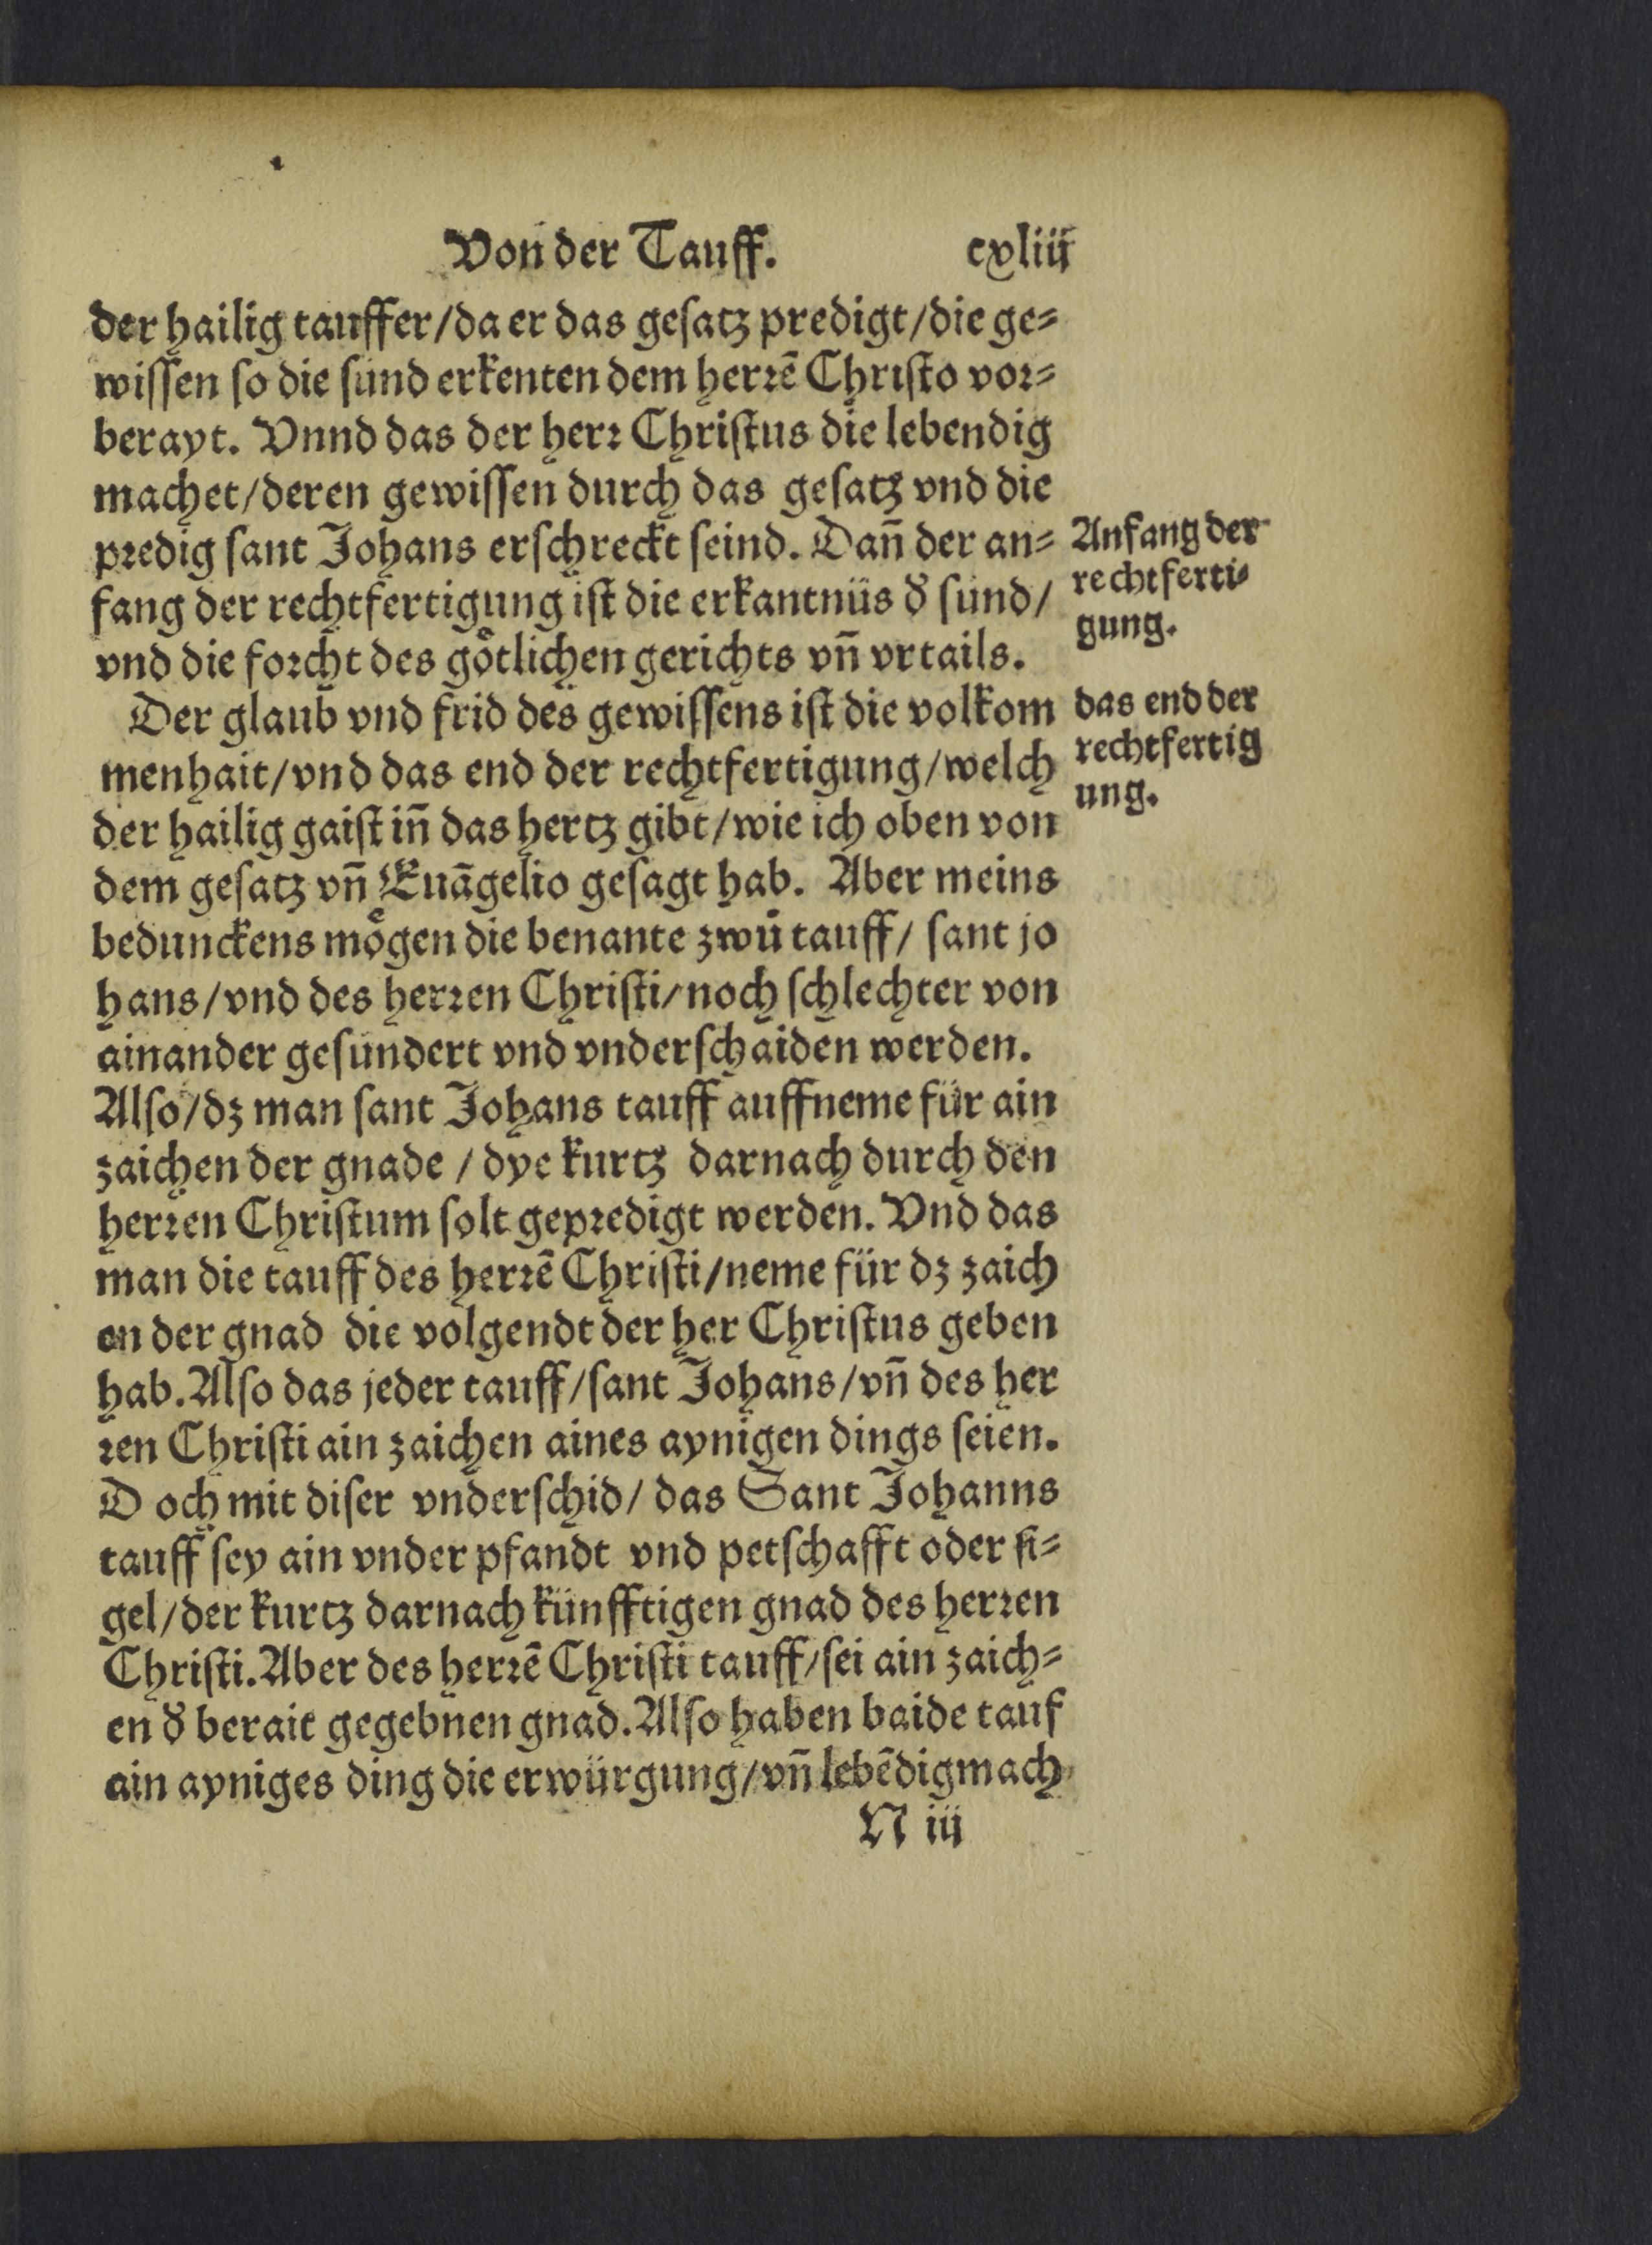 Von der Tauff. cxliii
der hailig tauffer/da er das gesatz predigt/die ge⸗
wissen so die sund erkenten dem herrẽ Christo vor⸗
berayt. Vnnd das der herr Christus die lebendig
machet/deren gewissen durch das gesatz vnd die
predig sant Johans erschreckt seind. Dañ der an⸗
fang der rechtfertigung ist die erkantnüs d̕ sund/
vnd die forcht des goͤtlichen gerichts vñ vrtails.
Anfang der
rechtferti⸗
gung.
Der glaub vnd frid des gewissens ist die volkom
menhait/vnd das end der rechtfertigung/welch
der hailig gaist iñ das hertz gibt/wie ich oben von
das end der
rechtfertig
ung.
dem gesatz vñ Euãgelio gesagt hab. Aber meins
bedunckens moͤgen die benante zwů tauff/ sant jo
hans/vnd des herren Christi/noch schlechter von
ainander gesundert vnd vnderschaiden werden.
Also/dz man sant Johans tauff auffneme für ain
zaichen der gnade / dye kurtz darnach durch den
herren Christum solt gepredigt werden. Vnd das
man die tauff des herrẽ Christi/neme für dz zaich
en der gnad die volgendt der her Christus geben
hab. Also das jeder tauff/sant Johans/vñ des her
ren Christi ain zaichen aines aynigen dings seien.
D och mit diser vnderschid/ das Sant Johanns
tauff sey ain vnder pfandt vnd petschafft oder si⸗
gel/der kurtz darnach künfftigen gnad des herren
Christi. Aber des herrẽ Christi tauff/sei ain zaich⸗
en d̕ berait gegebnen gnad. Also haben baide tauf
ain ayniges ding die erwürgung/vñ lebẽdigmach
N iii